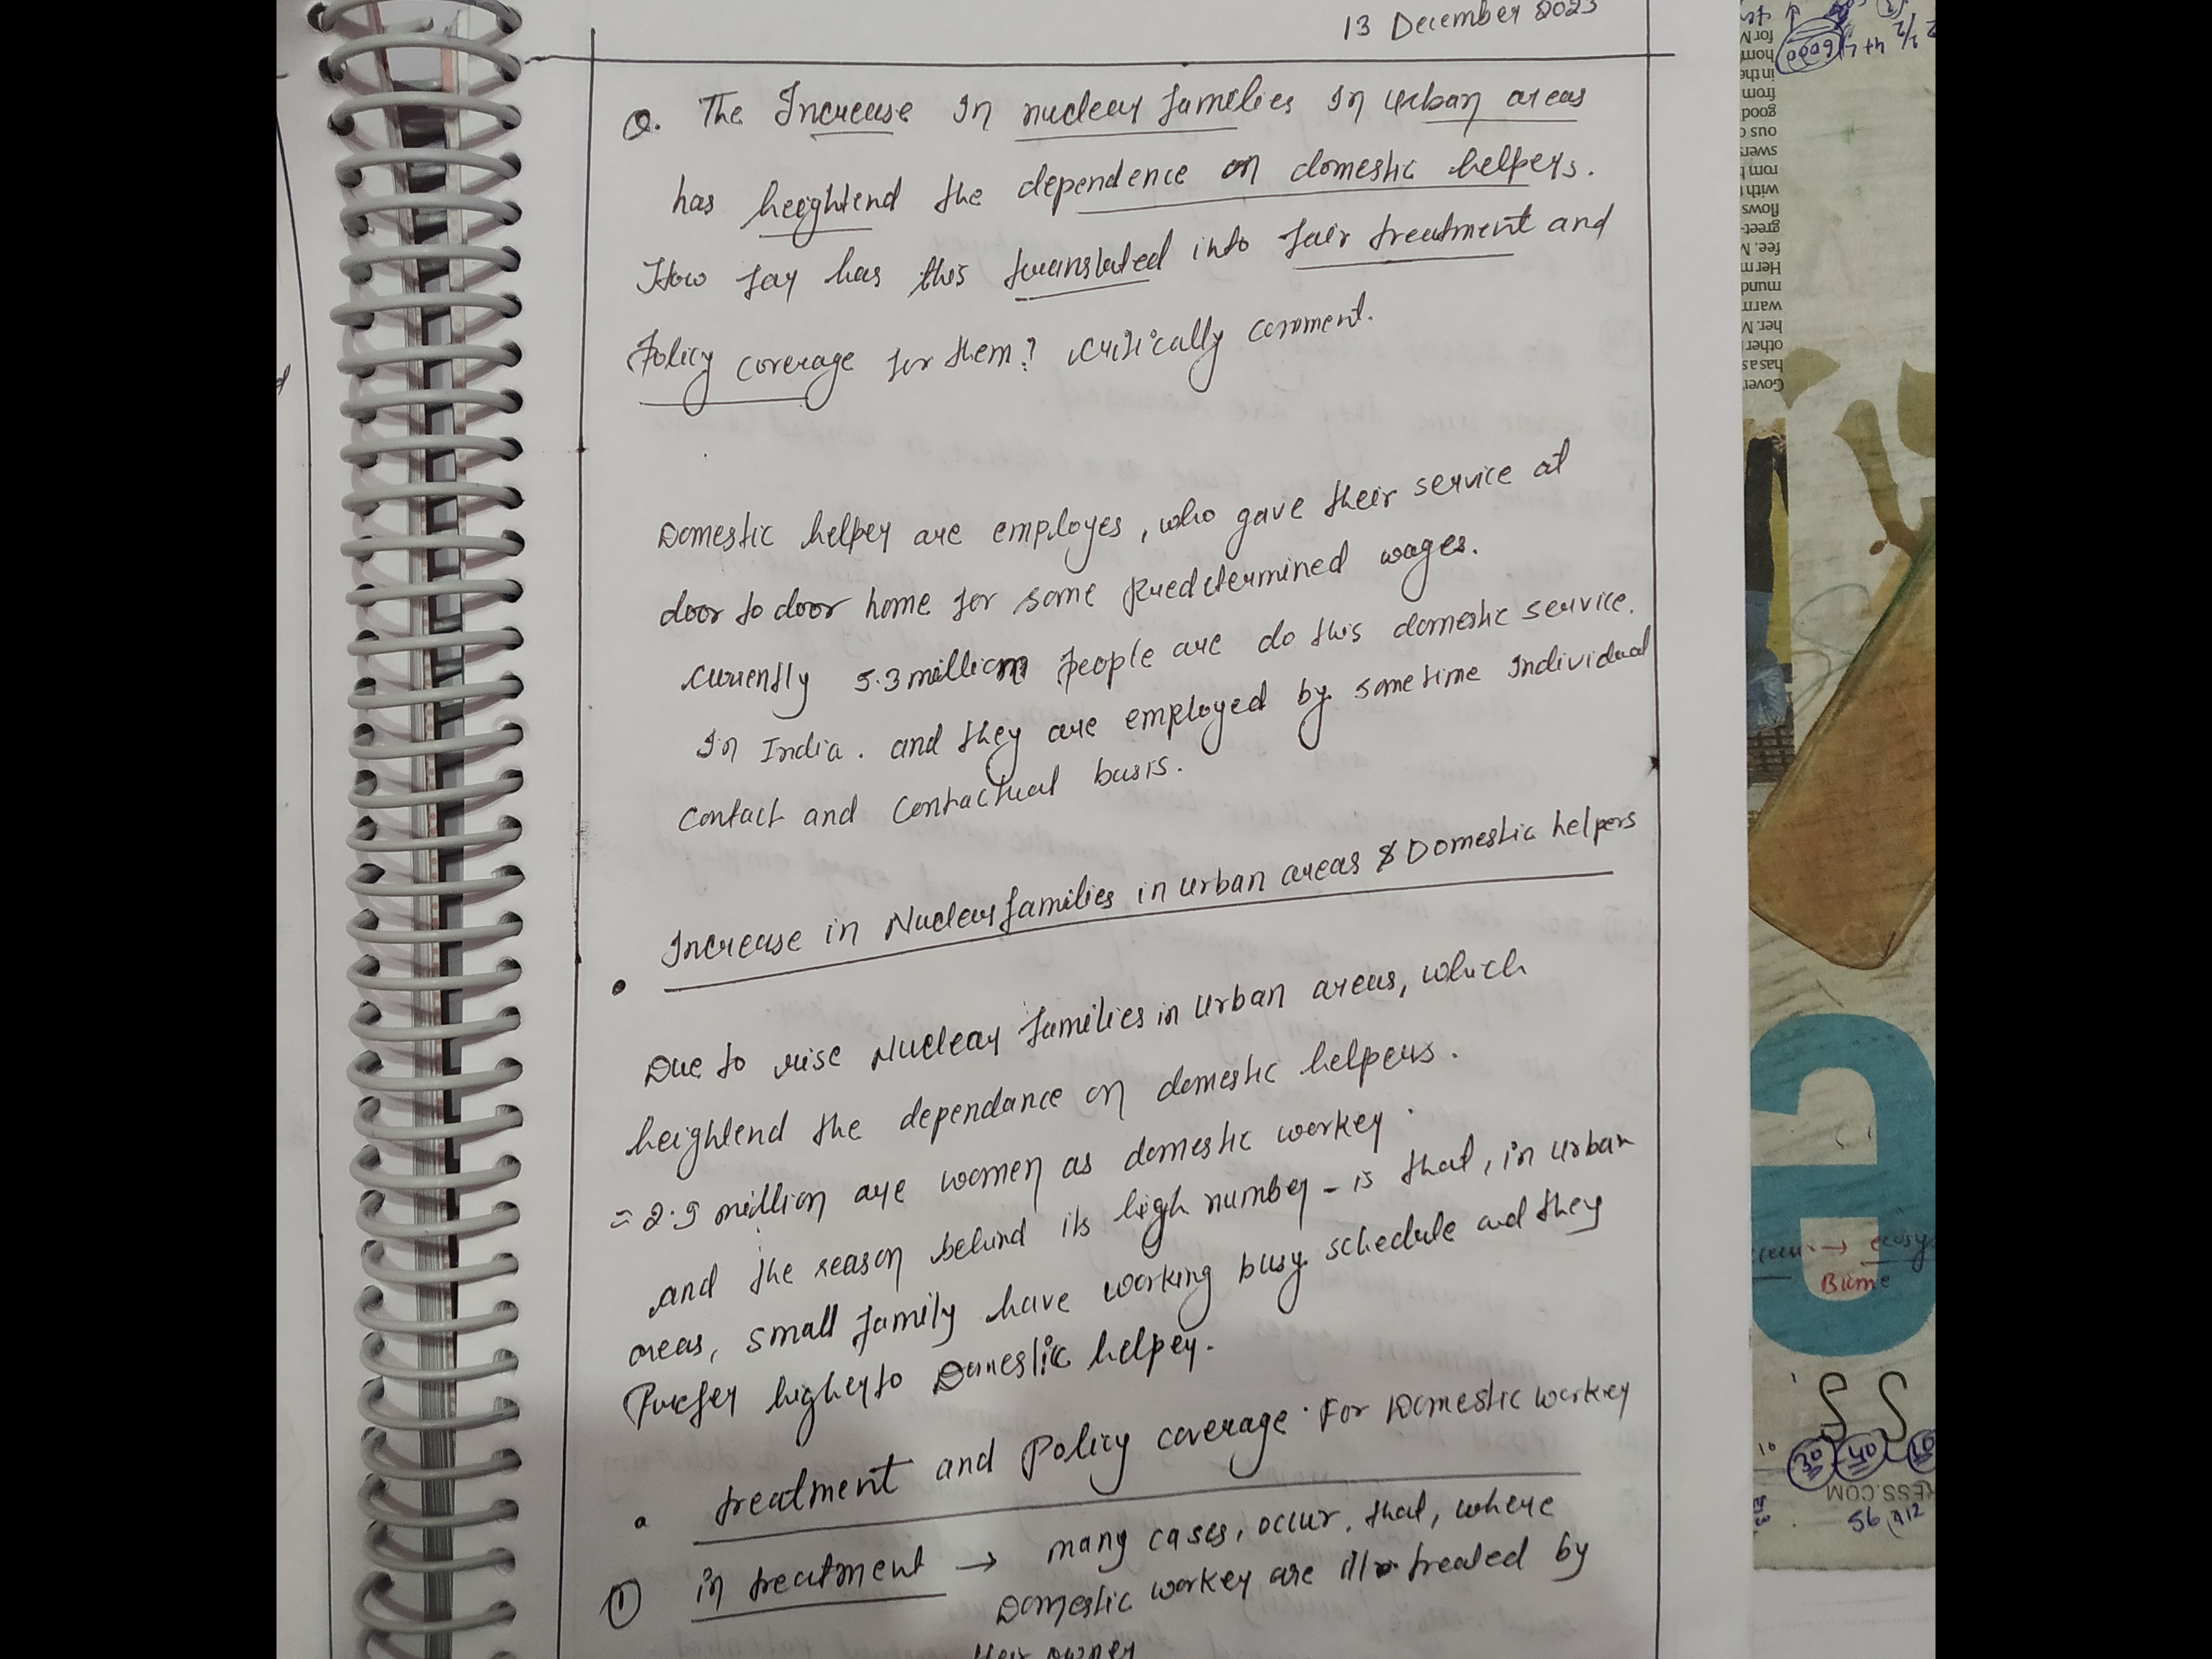 13 December 2023
Q. The Increase In nuclear families In Urban areas
has heightend the dependence on domestic helpers.
How far has this translated into fair treatment and
Policy coverage for them? critically comment.
Domestic helper are employes, who gave their service at
door to door home for some predetermined wages.
currently 5.3 million people are do this domestic service.
In India. and they are employed by sometime Individual
contact and contactual basis.
• Increase in Nuclear families in urban areas & Domestic helpers
Due to rise Nuclear families in Urban areas, which
heightend the dependance on domestic helpers.
= 2.9 million are women as domestic worker.
and the reason behind its high number - is that, in urban
areas, small family have working busy schedule and they
Prefer higher to Domestic helper.
• treatment and Policy coverage For Domestic worker
① in treatment → many cases, occur, that, where
Domestic worker are ill treated by
their owner
Gover
has as a
other
her. M
warm
mund
Her m
fee. M
greet-
flows
with
rom
swers
ous
good
from
in the
hom
for M
6000
ecosy
Bume
10
30 40 10
RESS.COM
56 12